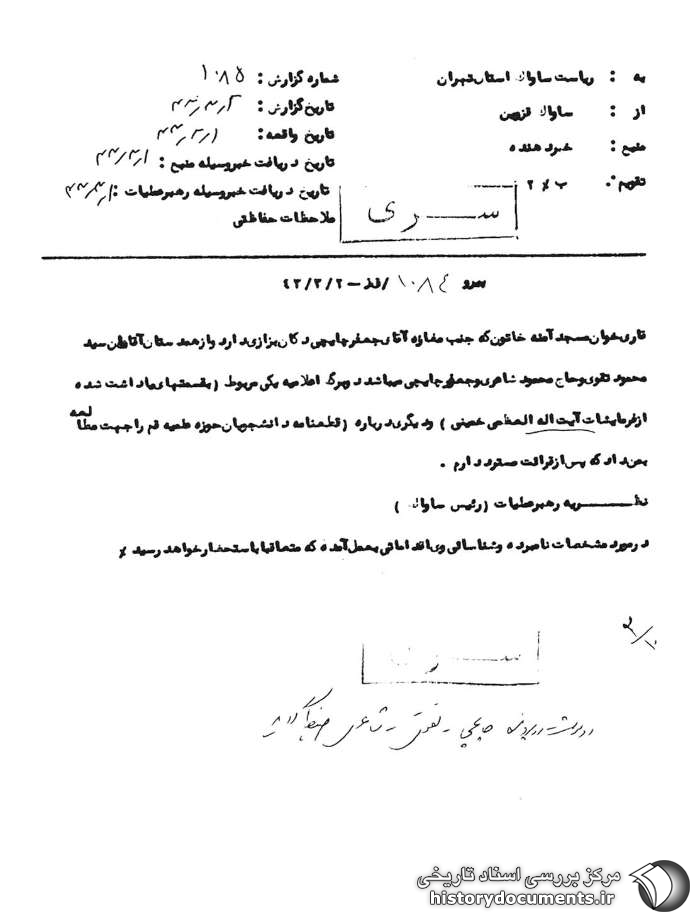 به : ریاست ساواک استان تهران
از : ساواک قزوین
منبع : خبردهنده
تقویم : ب ٪ ۲
شماره گزارش : ۱۰۸۵
تاریخ گزارش : ۴۳٫۳٫۲
تاریخ واقعه : ۴۳٫۳٫۱
تاریخ دریافت خبر وسیله منبع : ۴۳٫۳٫۱
تاریخ دریافت خبر وسیله رهبر عملیات : ۴۳٫۳٫۱
ملاحظات حفاظتی
ســـری
پیرو ۱۰۸۴/قز – ۴۳/۳/۲
قاری خوان مسجد آمنه خاتون که جنب مغازه آقای جعفر چایچی دکان بزازی دارد و از همدستان آقایان سید
محمود تقوی و حاج محمود شاعری و جعفر چایچی میباشد دو برگ اعلامیه یکی مربوط ( بقسمتهای یادداشت شده
از فرمایشات آیت اله العظمی خمینی ) و دیگری درباره ( قطعنامه دانشجویان حوزه علمیه قم را جهت مطالعه
بمن داد که پس از قرائت مسترد دارم .
نظـــــریه رهبر عملیات ( رئیس ساواک )
در مورد مشخصات نامبرده و شناسائی وی اقداماتی بعمل آمده که متعاقبا باستحضار خواهد رسید ٪
ســـری
چایچی - تقوی - شاعری
مرکز بررسی اسناد تاریخی
historydocuments.ir